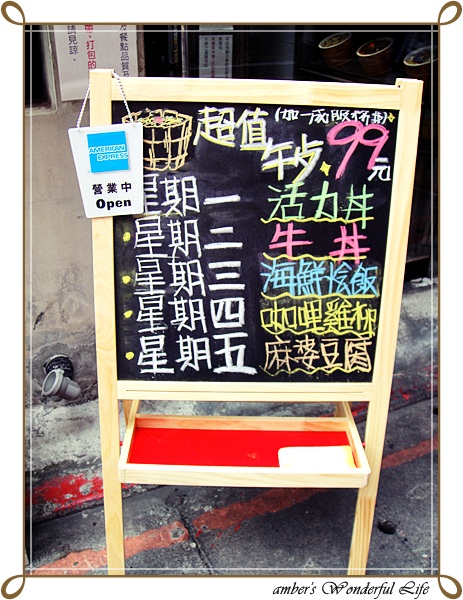 及餐點品質
帶、打包的
請見諒。
AMERICAN
EXPRESS
營業中
Open
超值(加一成服務費)
午步99元
星期一 活力丼
星期二 牛丼
星期三 海鮮燴飯
星期四 咖哩雞柳
星期五 麻婆豆腐
amber's Wonderful Life